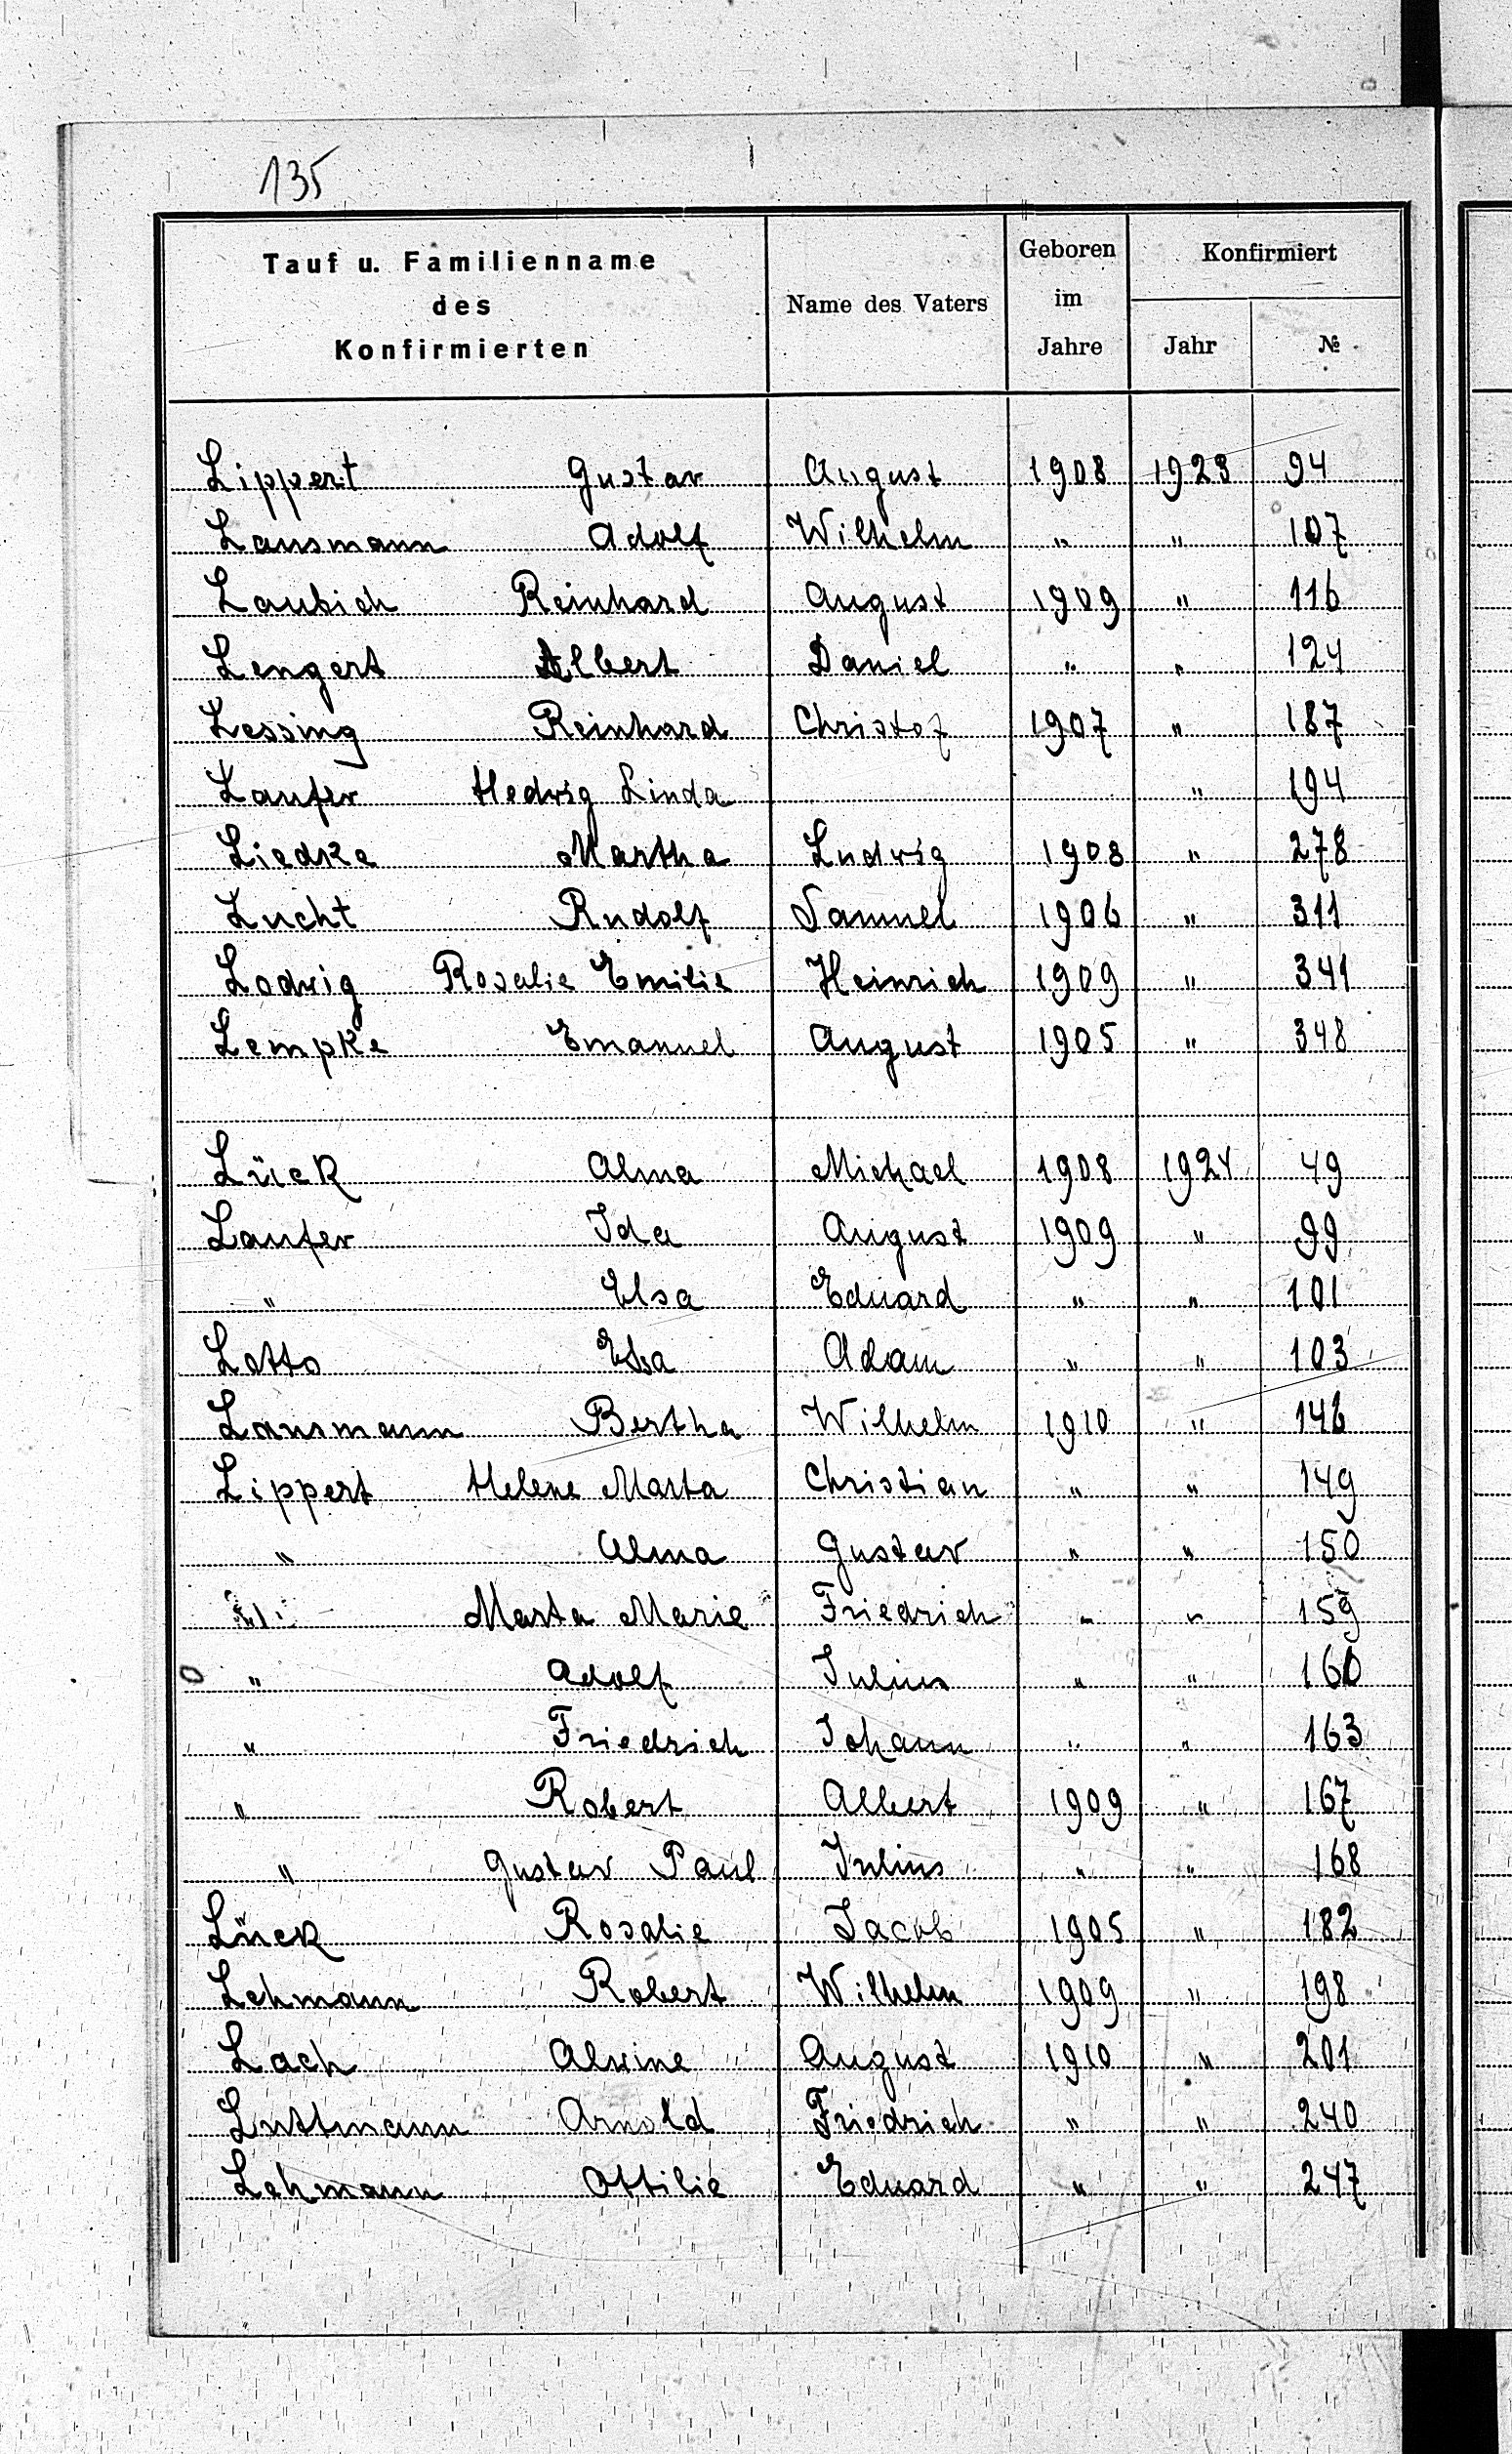 135
Tauf u. Familienname des Konfirmierten | Name des Vaters | Geboren im Jahre | Konfirmiert Jahr | №
Lippert Gustav August 1908 1923 94
Lausmann Adolf Wilhelm " " 107
Laubich Reinhard August 1909 " 116
Lengert Albert Daniel " " 124
Lessing Reinhard Christof 1907 " 187
Laufer Hedwig Linda " 194
Liedke Martha Ludwig 1908 " 278
Lucht Rudolf Samuel 1906 " 311
Lodwig Rosalie Emilie Heinrich 1909 " 341
Lempke Emanuel August 1905 " 348
Lück Alma Michael 1908 1924 49
Laufer Ida August 1909 " 99
" Elsa Eduard " " 101
Lotto Elsa Adam " " 103
Lausmann Bertha Wilhelm 1910 " 146
Lippert Helene Marta Christian " " 149
" Alma Gustav " " 150
" Marta Marie Friedrich " " 159
" Adolf Julius " " 160
" Friedrich Johann " " 163
" Robert Albert 1909 " 167
" Gustav Paul Julius " " 168
Lück Rosalie Jacob 1905 " 182
Lehmann Robert Wilhelm 1909 " 198
Lach Alwine August 1910 " 201
Luttmann Arnold Friedrich " " 240
Lehmann Ottilie Eduard " " 247